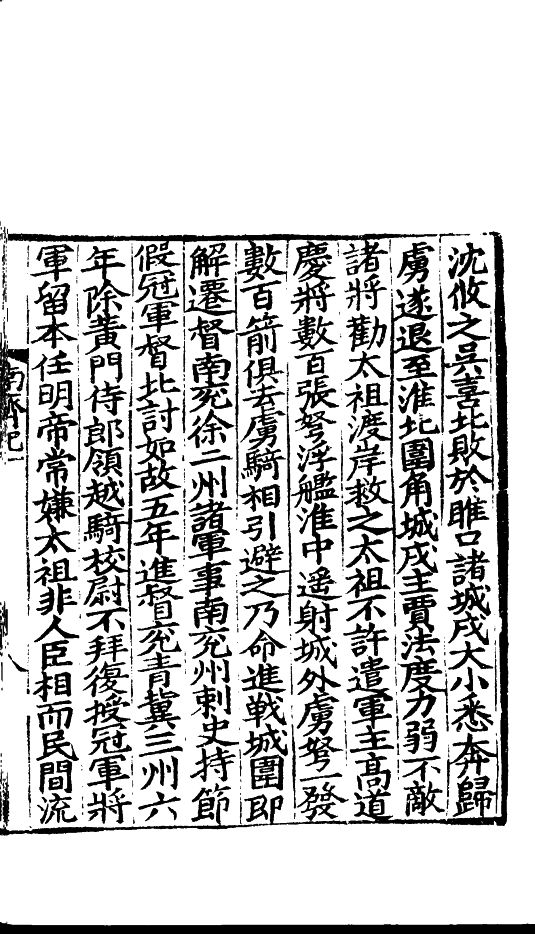 沈攸之吳喜北敗於睢口諸城戍大小悉奔歸
虜遂退至淮北圍角城戍主賈法度力弱不敵
諸將勸太祖渡岸救之太祖不許遣軍主高道
慶將數百張弩浮艦淮中遥射城外虜弩一發
數百箭俱去虜騎相引避之乃命進戰城圍即
解遷督南兖徐二州諸軍事南兖州刺史持節
假冠軍督北討如故五年進督兖青冀三州六
年除黃門侍郎領越騎校尉不拜復授冠軍將
軍留本任明帝常嫌太祖非人臣相而民間流
南齊紀一
八